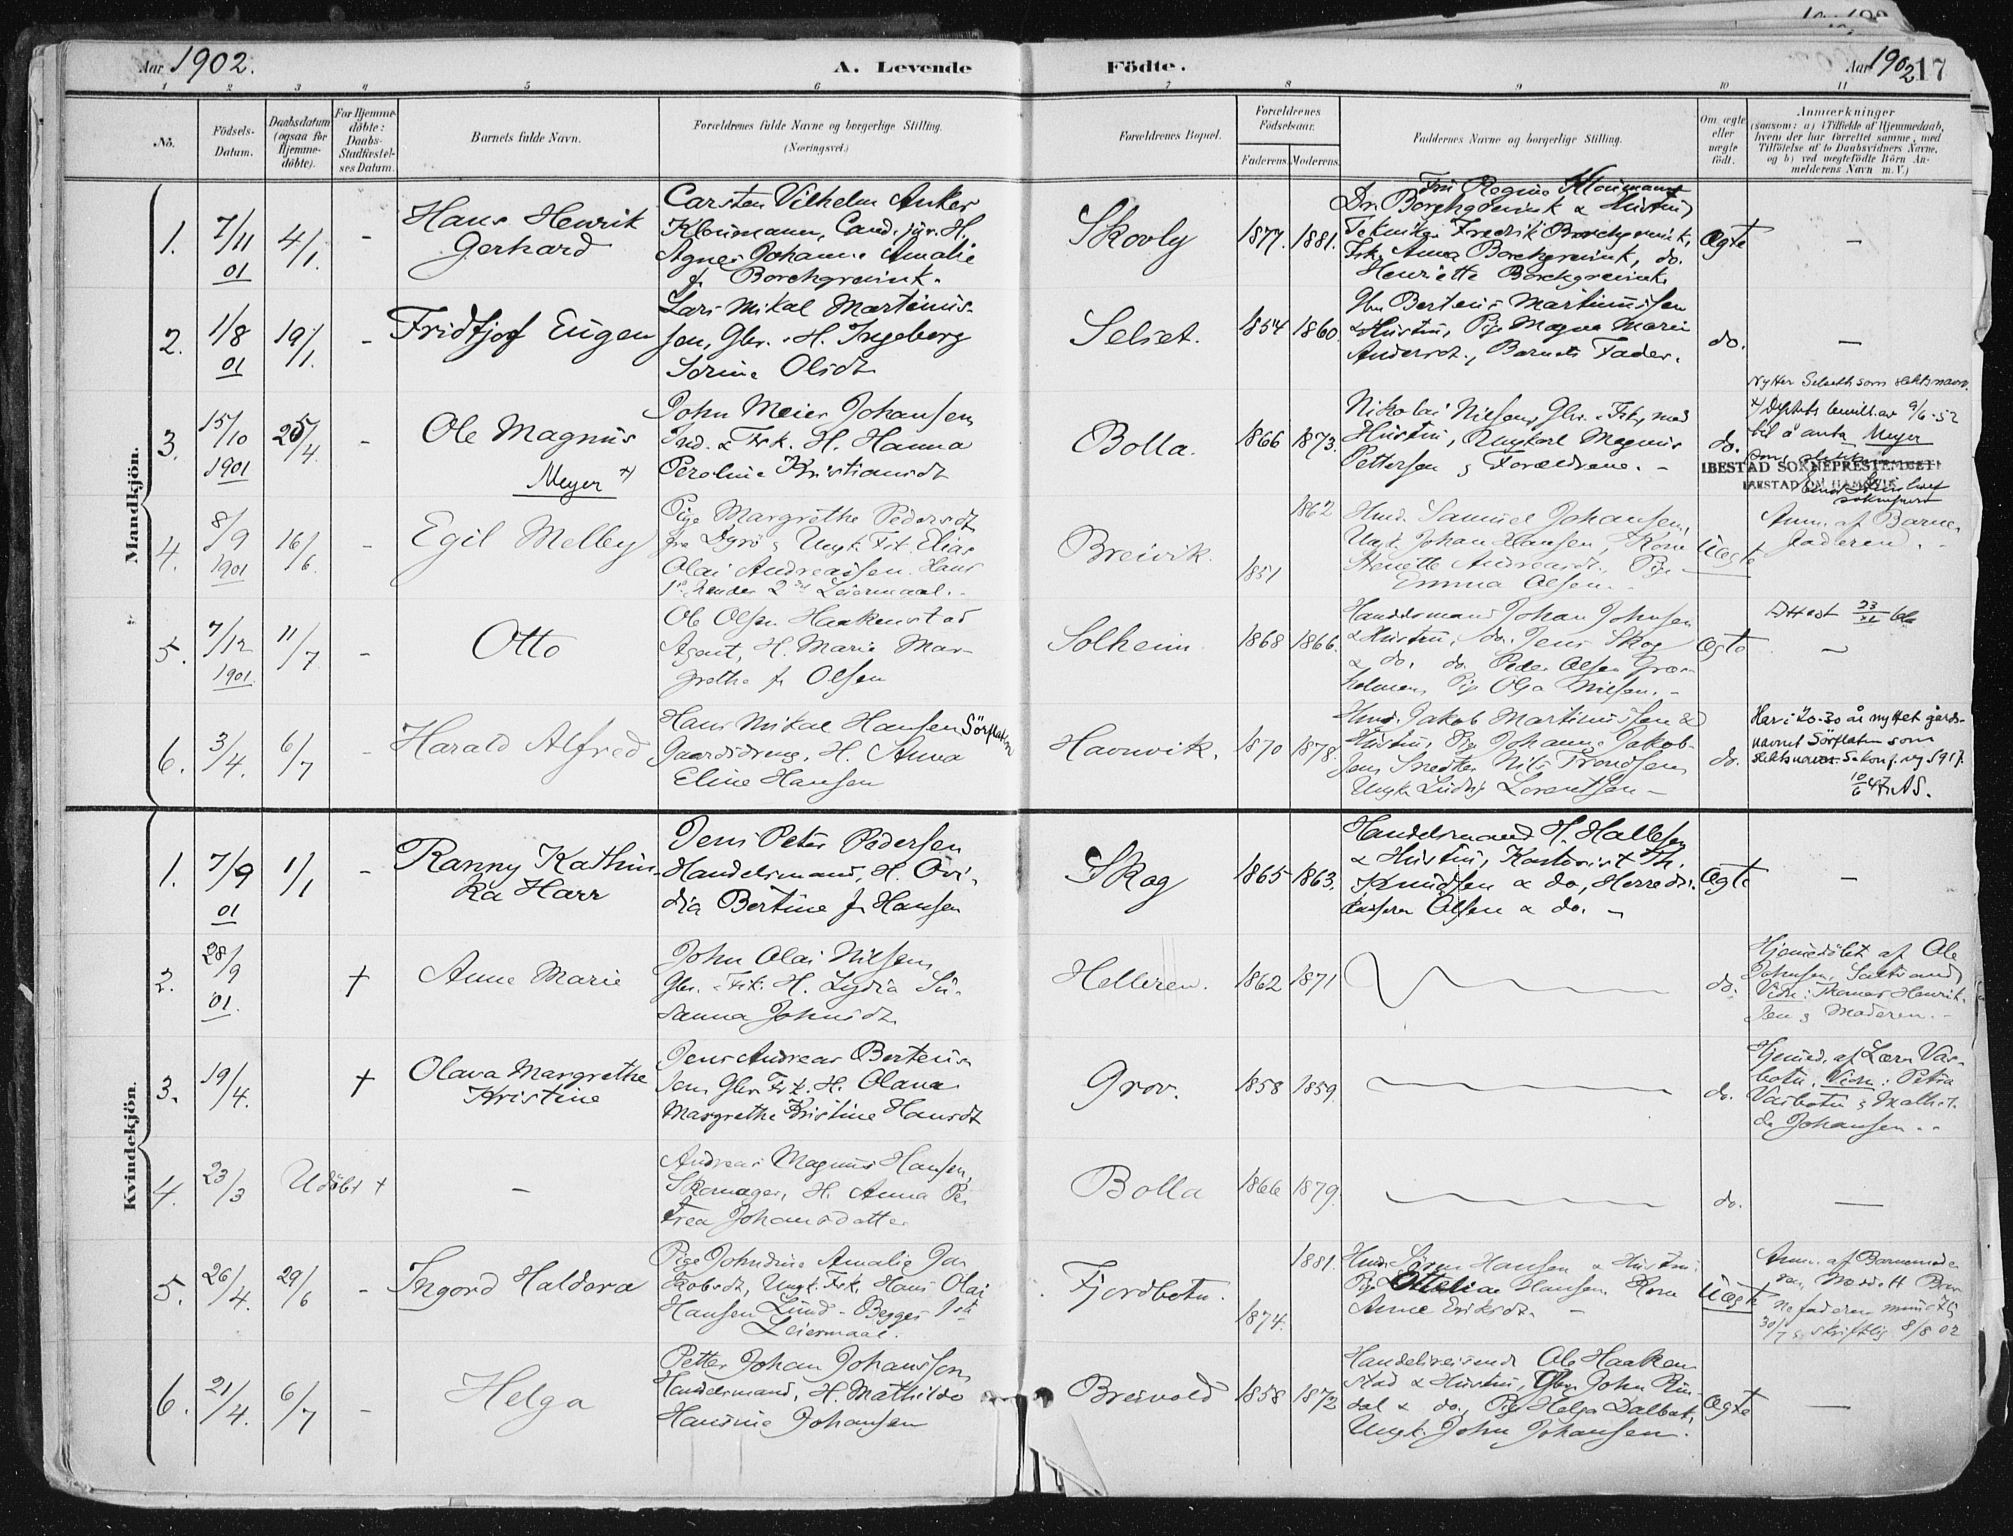 Aar 1902.
A. Levende
Födte.
Aar 1902
17
1 2 3 4 5 6 7 8 9 10 11
No.
Födsels-
Datum.
Daabsdatum
(ogsaa for
Hjemme-
döbte).
For Hjemme-
döbte:
Daabs-
Stadfæstel-
ses Datum.
Barnets fulde Navn.
Forældrenes fulde Navne og borgerlige Stilling.
(Næringsvei.)
Forældrenes Bopæl.
Forældrenes
Födselsaar.
Faderens. Moderens.
Faddernes Navne og borgerlige Stilling.
Om ægte
eller
uægte
födt.
Anmærkninger
(saasom: a) i Tilfælde af Hjemmedaab,
hvem der har forrettet samme, med
Tilföielse af to Daabsvidners Navne,
og b) ved uegtefödte Börn An-
melderens Navn m. V.)
Mandkjön.
1. 7/11 01 4/1 -
Hans Henrik
Gerhard
Carsten Vilhelm Anker
Klouman, Cand. jur. H.
Agnes Johanne Amalie
f. Borchgrevink.
Skovly 1877. 1881.
Dr. Borchgrevink & Hustru
Tekniker Fredrik Borchgrevink,
Frk. Anna Borchgrevink, do.
Henriette Borchgrevink
Ægte -
2. 1/8 01 19/1 -
Fridtjof Eugen
Lars Mikal Martinus-
sen, Gbr. H. Ingeborg
Sorine Olsdt
Selset. 1854 1860.
Gbr Berteus Martinussen
& Hustru, Pige Magna Marie
Andersdt., Barnets Fader.
do. -
3. 15/10 1901 25/4 -
Ole Magnus
Meyer x)
John Meier Johansen
Ind. & Fsk. H. Hanna
Peroline Kristiansdt
Bolla. 1866 1873.
Nikolai Nilsen, Gbr. Fsk. med
Hustru, Ungkarl Magnus
Pettersen & Forældrene. -
do.
Nytter Selseth som slektsnavn.
x) Deptets bevill. av 9/6-52
til å anta Meyer
IBESTAD SOKNEPRESTEMBETE
4. 8/9 1901 16/6 -
Egil Melby
Pige Margrethe Pedersdt
fra Dyrö & Ungk. Fsk. Elias
Olai Andreassen. Hans
1ste hendes 2det Leiermaal.
Breivik. 1851 1862
Hmd. Samuel Johansen,
Ungk. Johan Hansen, Kone
Henrette Andreasdt., Pige
Emma Olsen.
Uægte
Anm. af Barne-
faderen.
5. 7/12 1901. 11/7 -
Otto
Ole Olsen Haakenstad
Agent, H. Marie Mar-
grethe f. Olsen
Solheim 1868 1866.
Handelsmand Johan Johnsen
& Hustru, do. Jens Skog
& do. do. Peder Olsen Græs-
holmen, Pige Olga Nilsen. -
Ægte
Attest 23/11 66
-
6. 3/4. 6/7 -
Harald Alfred
Hans Mikal Hansen Sörflaten
Gaardsdreng, H. Anna
Eline Hansen
Havnvik. 1870 1878.
Hmd. Jakob Martinussen &
Hustru, Pige Johanne Jakob-
sen Snedker Nils Trondsen,
Ungk. Ludvig Lorentsen -
do.
Har i 20-30 år nyttet gårds-
navnet Sörflaten som
slektsnavn.
10/6 47. A.S.
Kvindekjön.
1. 7/9 01 1/1 -
Ranny Kathin-
ka Harr
Jens Peter Pedersen
Handelsmand, H. Ovi-
dia Bertine f. Hansen
Skog 1865 1863.
Handelsmand H. Hallesen
& Hustru, Kontorist Th.
Knudsen & do, Herreds-
kasserer Olsen & do. -
Ægte -
2. 28/9 01. †
Anne Marie
John Olai Nilsen,
Gbr. Fsk. H. Lydia Su-
sanna Johnsdt.
Helleren. 1862 1871
do.
Hjemmedöbt af Ole
Johnsen, Saltsand
Vidn: Thomas Henrik-
sen & Moderen. -
3. 19/4. †
Olava Margrethe
Kristine
Jens Andreas Berteus-
sen, Gbr. Fsk. H. Olava
Margrethe Kristine Hansdt
Grov. 1858 1859.
do.
Hjemmed. af Lærer Vas-
botn. Vidn: Petra
Vasbotn & Mathil-
de Johansen.
4. 23/3 Udöbt †
-
Andreas Magnus Hansen,
Skomager, H. Anna Pe-
trea Johansdatter
Bolla 1866 1879.
do. -
5. 26/4. 29/6 -
Ingord Haldora
Pige Johndine Amalie Ja-
kobsdt, Ungk. Fsk. Hans Olai
Hansen Lund - Begges 1ste
Leiermaal.
Fjordbotn. 1874. 1881.
Hmd. Hansen & Hustru
Pige Ottelia Hansen, Kone
Anne Eriksdt. -
Uægte
Anm. af Barnemode-
ren, Bar-
nefaderen mundtlig
30/7 & skriftlig 8/8 02
6. 21/4. 6/7 -
Helga
Petter Johan Johansson
Handelsmand, H. Mathilde
Hansine Johansen
Breivold 1858 1872
Handelsreisende Ole Haaken-
stad & Hustru, Gbr. John Rin-
dal & do., Pige Helga Dalbak,
Ungk. John Johansen.
Ægte -